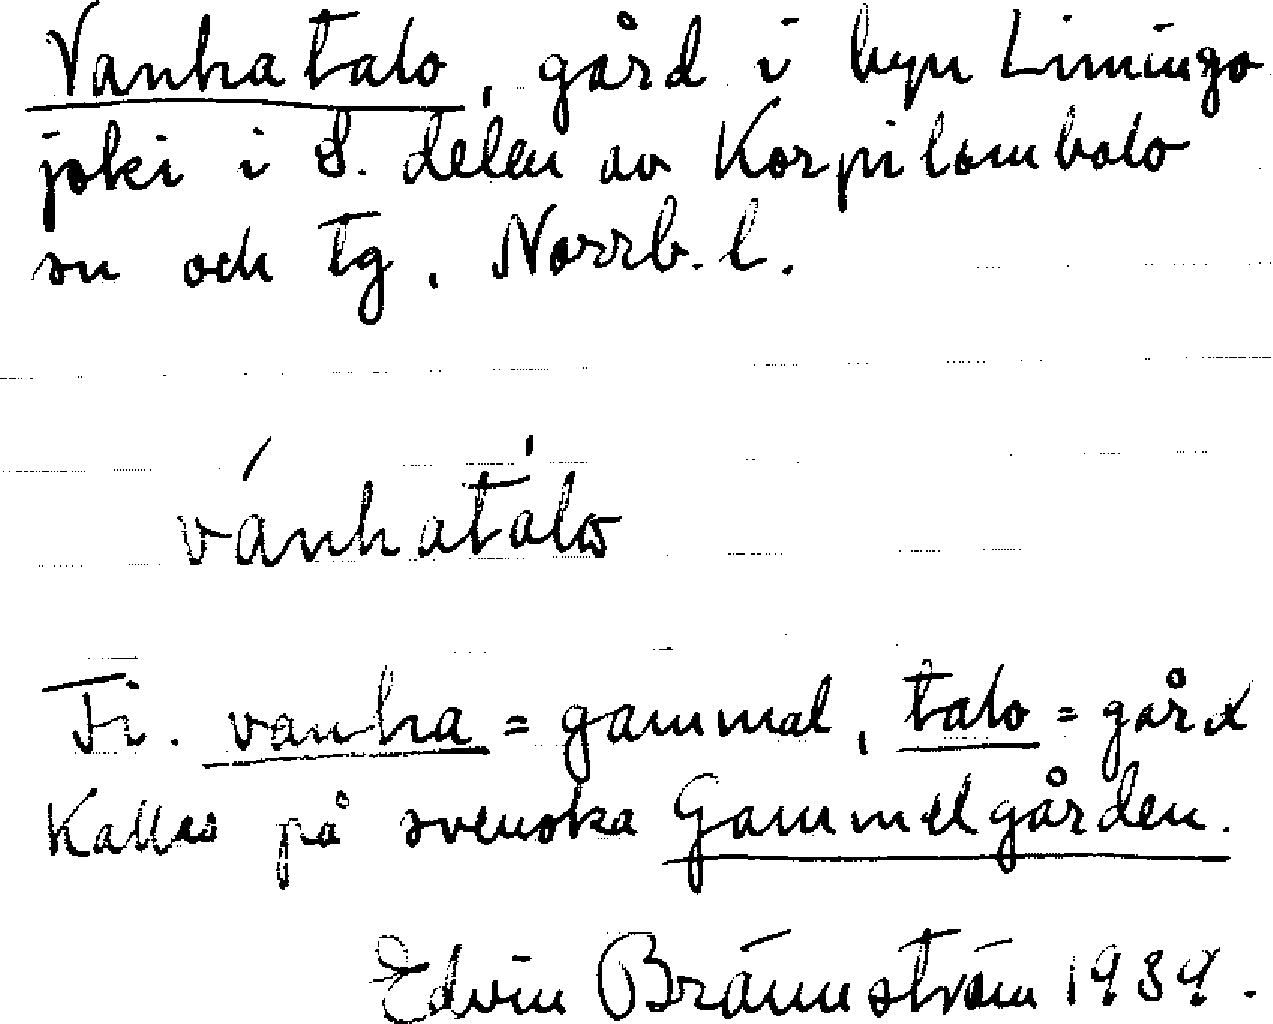 Vanhatalo, gård i byn Limingo
joki i S. delen av Korpilombolo
sn och tg, Norrb. l.
vánhatálω
Fi. vanha = gammal, talo = gård
Kallas på svenska Gammelgården.
Edvin Brännström 1939.